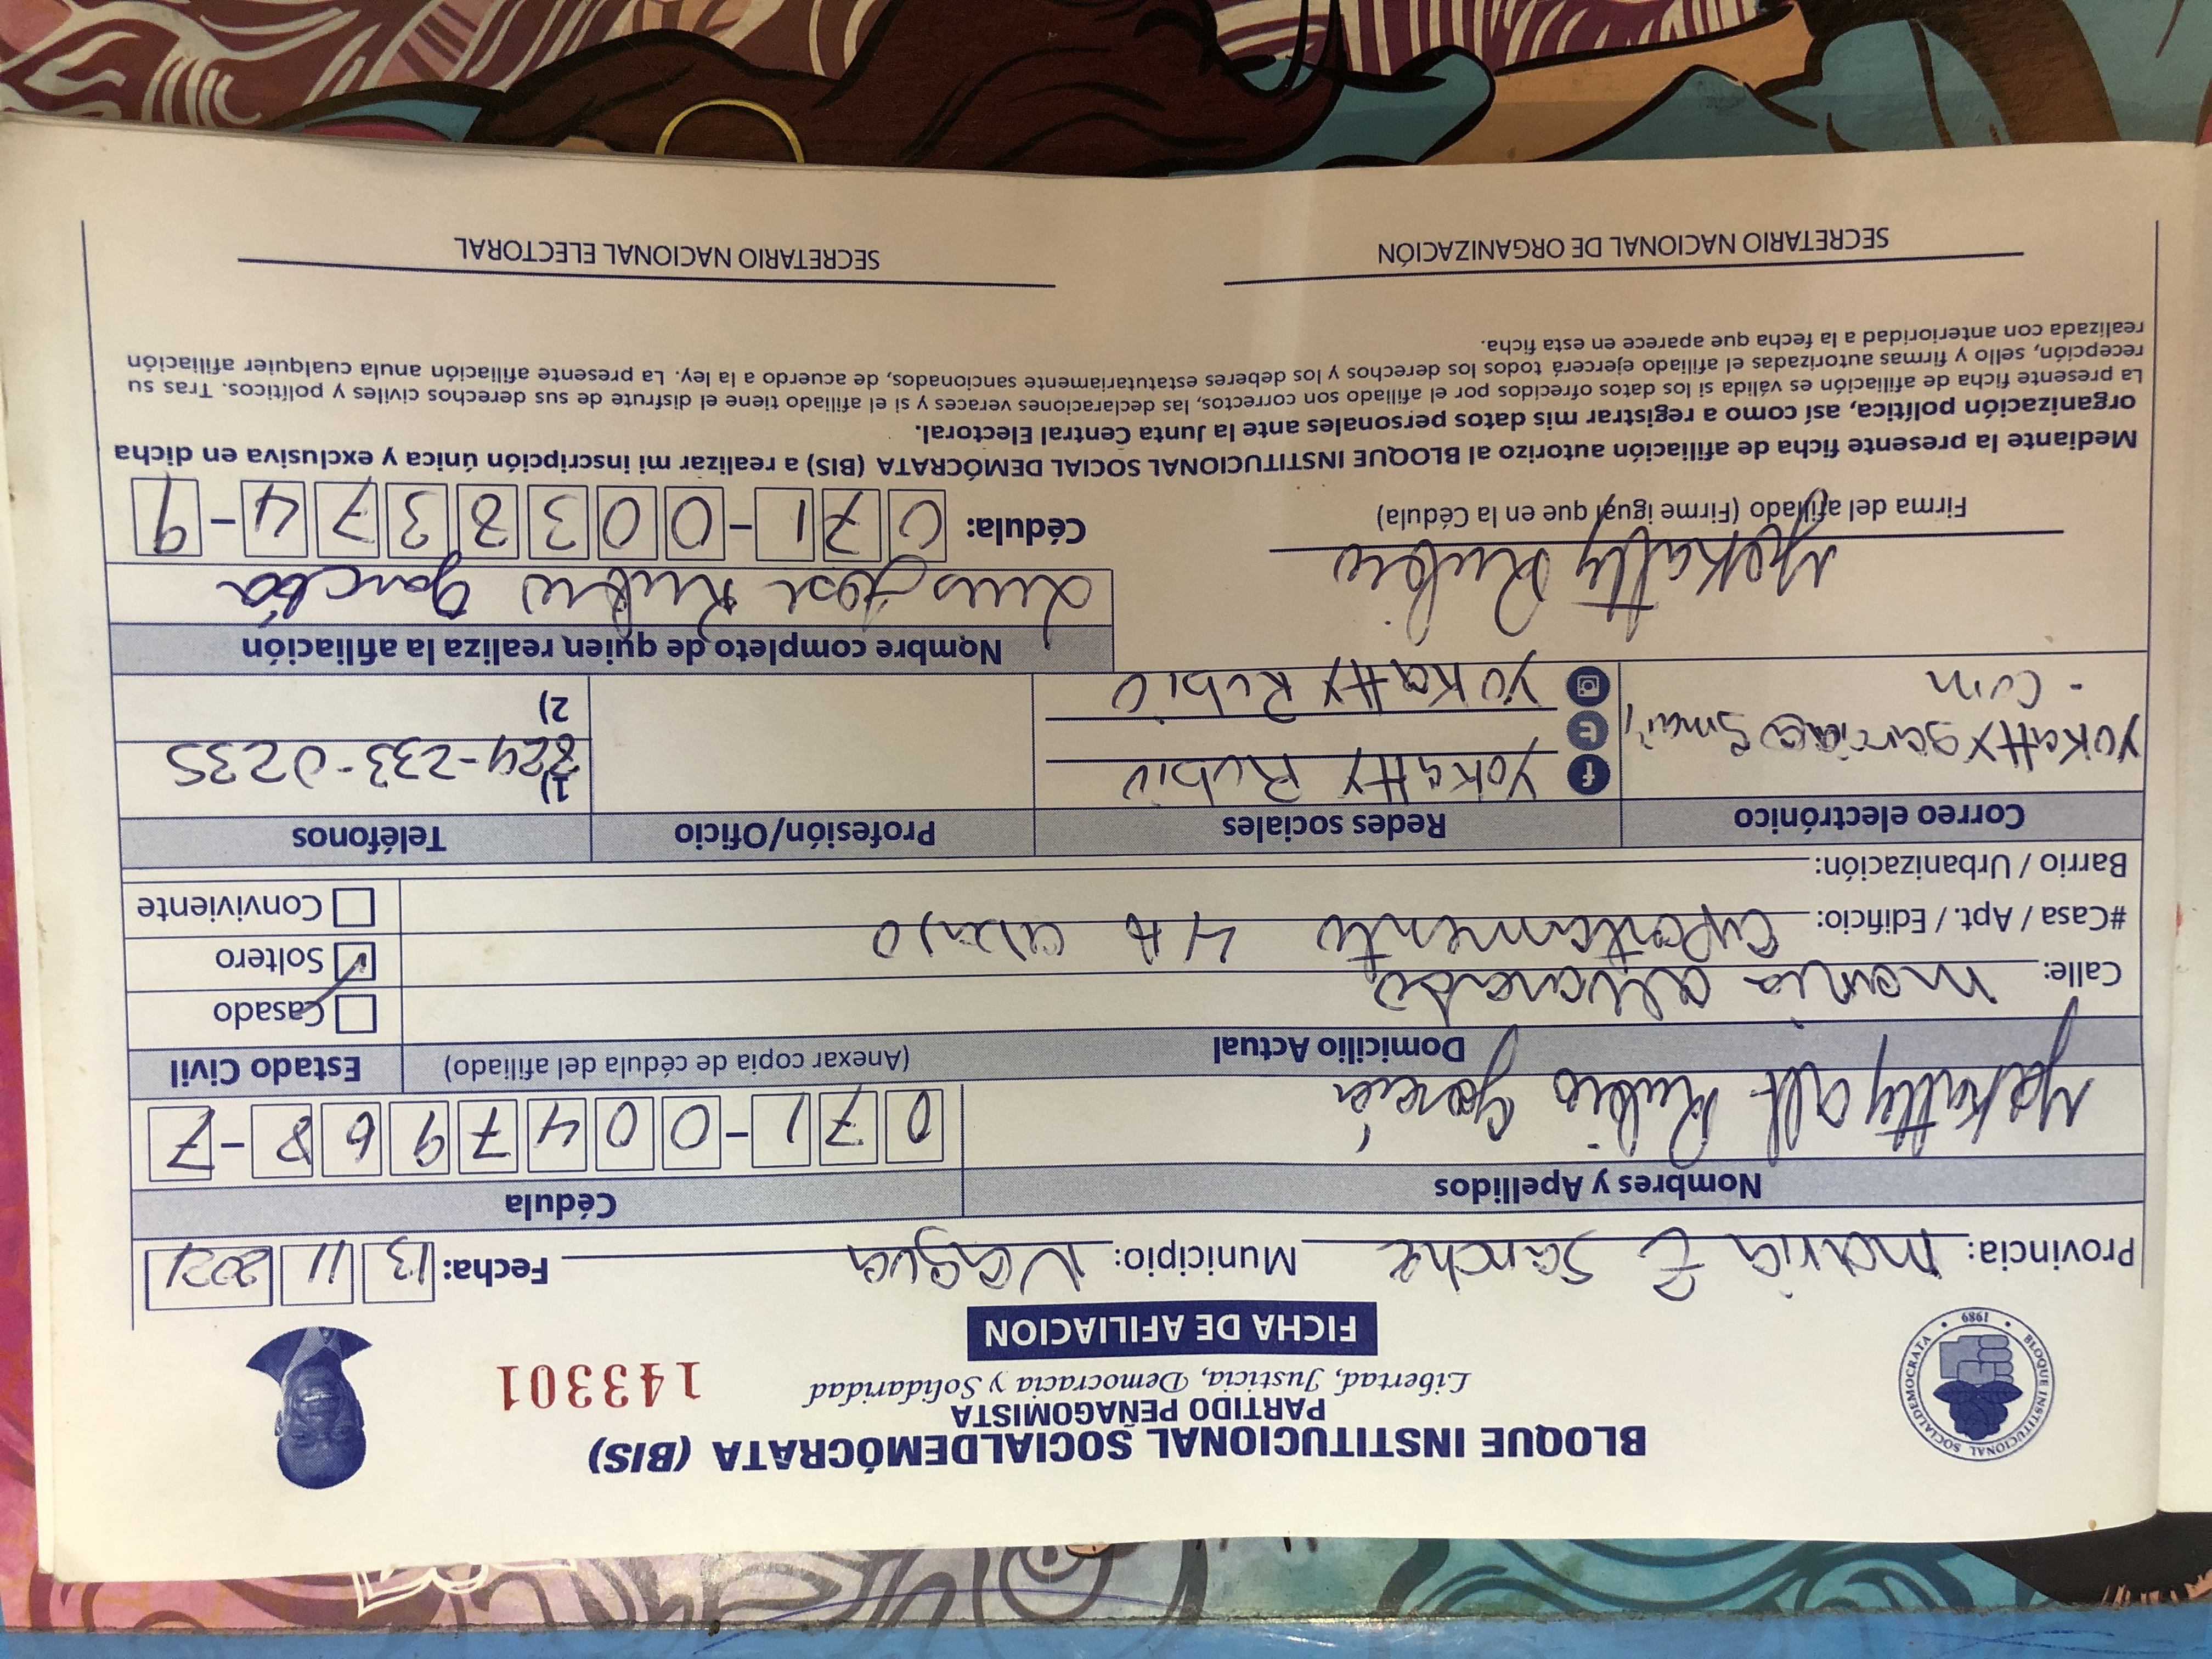 BLOQUE INSTITUCIONAL SOCIALDEMÓCRATA (BIS)
PARTIDO PEÑAGOMISTA
Libertad, Justicia, Democracia y Solidaridad
143301
BLOQUE INSTITUCIONAL SOCIALDEMOCRATA
1989
FICHA DE AFILIACION
Provincia: Maria E Sanche Municipio: Nagua Fecha: 13 11 2021
Nombres y Apellidos Cédula
Yokatty alt Rubio Garcia 071-0047968-7
Domicilio Actual (Anexar copia de cédula del afiliado) Estado Civil
Calle: maria alvarado Casado
#Casa / Apt. / Edificio: apartamento 4A abajo Soltero
Barrio / Urbanización: Conviviente
Correo electrónico Redes sociales Profesión/Oficio Teléfonos
yokattygarcia@gmail yokatty Rubio 1) 824-233-0235
.com yokatty Rubio 2)
Nombre completo de quien realiza la afiliación
Luis Jose Rubio Garcia
Yokatty Rubio
Firma del afiliado (Firme igual que en la Cédula) Cédula: 071-0038374-9
Mediante la presente ficha de afiliación autorizo al BLOQUE INSTITUCIONAL SOCIAL DEMÓCRATA (BIS) a realizar mi inscripción única y exclusiva en dicha
organización política, así como a registrar mis datos personales ante la Junta Central Electoral.
La presente ficha de afiliación es válida si los datos ofrecidos por el afiliado son correctos, las declaraciones veraces y si el afiliado tiene el disfrute de sus derechos civiles y políticos. Tras su
recepción, sello y firmas autorizadas el afiliado ejercerá todos los derechos y los deberes estatutariamente sancionados, de acuerdo a la ley. La presente afiliación anula cualquier afiliación
realizada con anterioridad a la fecha que aparece en esta ficha.
SECRETARIO NACIONAL DE ORGANIZACIÓN SECRETARIO NACIONAL ELECTORAL